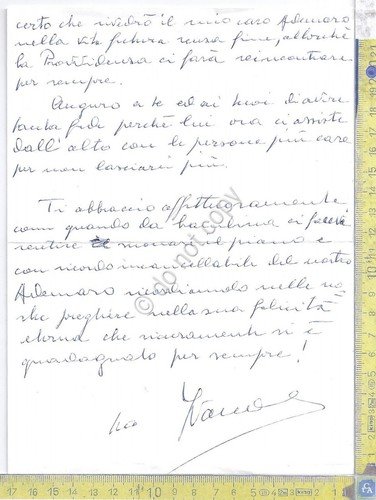 certo che rivedrò il mio caro Ademaro
nella vita futura senza fine, allorchè
la Provvidenza ci farà reincontrare
per sempre.
Auguro a te ed ai tuoi di avere
tanta fede perchè lui ora ci assiste
dall'alto con le persone più care
per non lasciarci più.
Ti abbraccio affettuosamente,
come quando da bambina ci facevi
sentire suonare il piano e
con ricordo incancellabile del nostro
Ademaro ricordiamolo nelle no-
stre preghiere nella sua felicità
eterna che sicuramente si è
guadagnato per sempre!
tuo
© do not copy
17 16 15 14 13 12 11 10 9 8 7 6 5 4 3 2 1